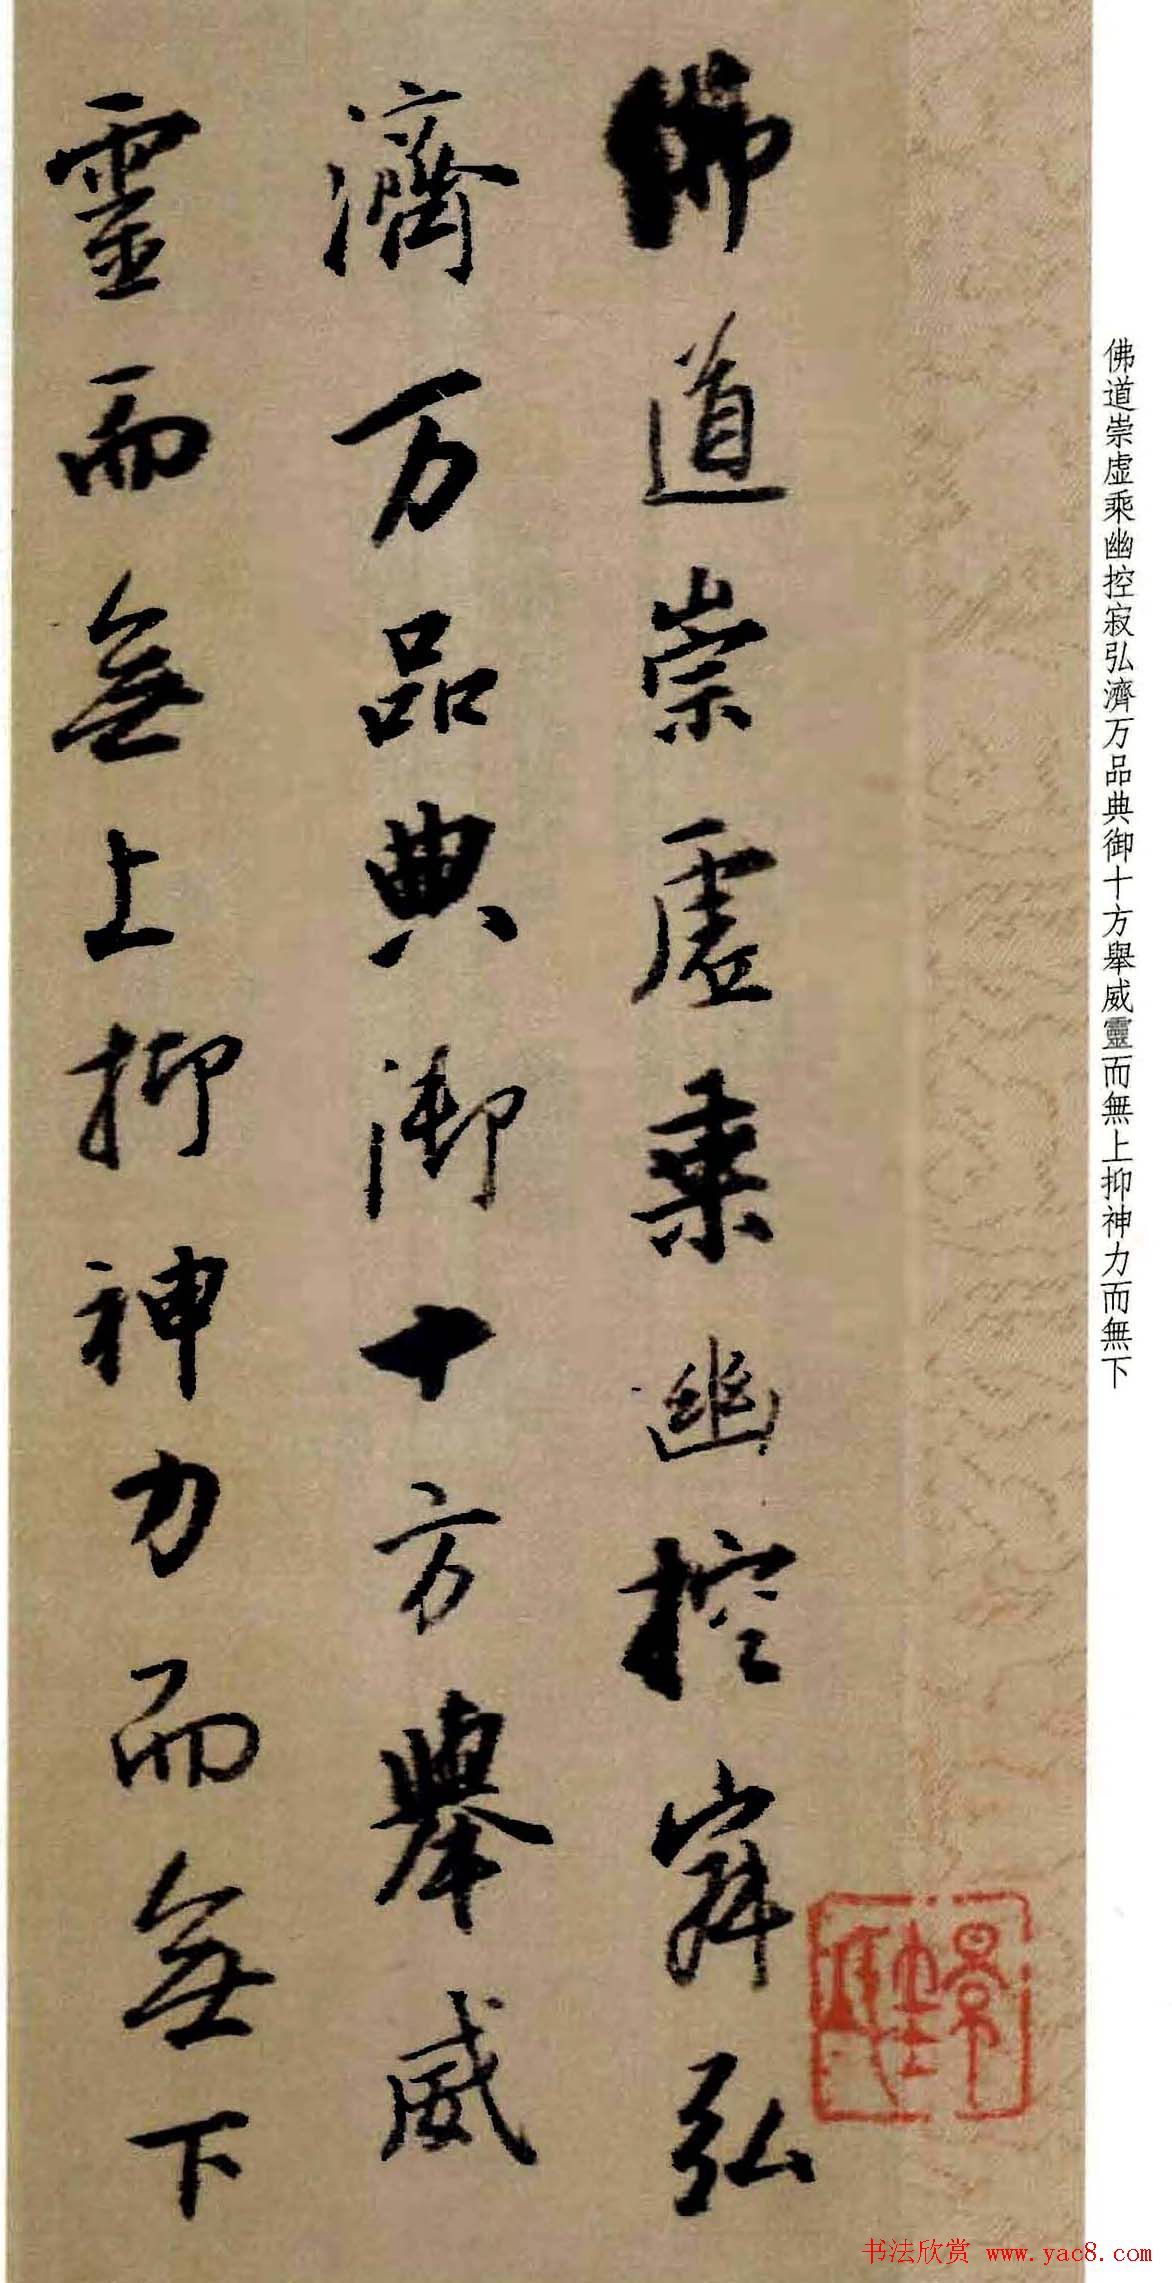 佛道崇虛乘幽控寂弘濟万品典御十方舉威靈而無上抑神力而無下
佛道崇虛乘幽控寂弘
濟万品典御十方舉威
靈而無上抑神力而無下
书法欣赏 www.yac8.com